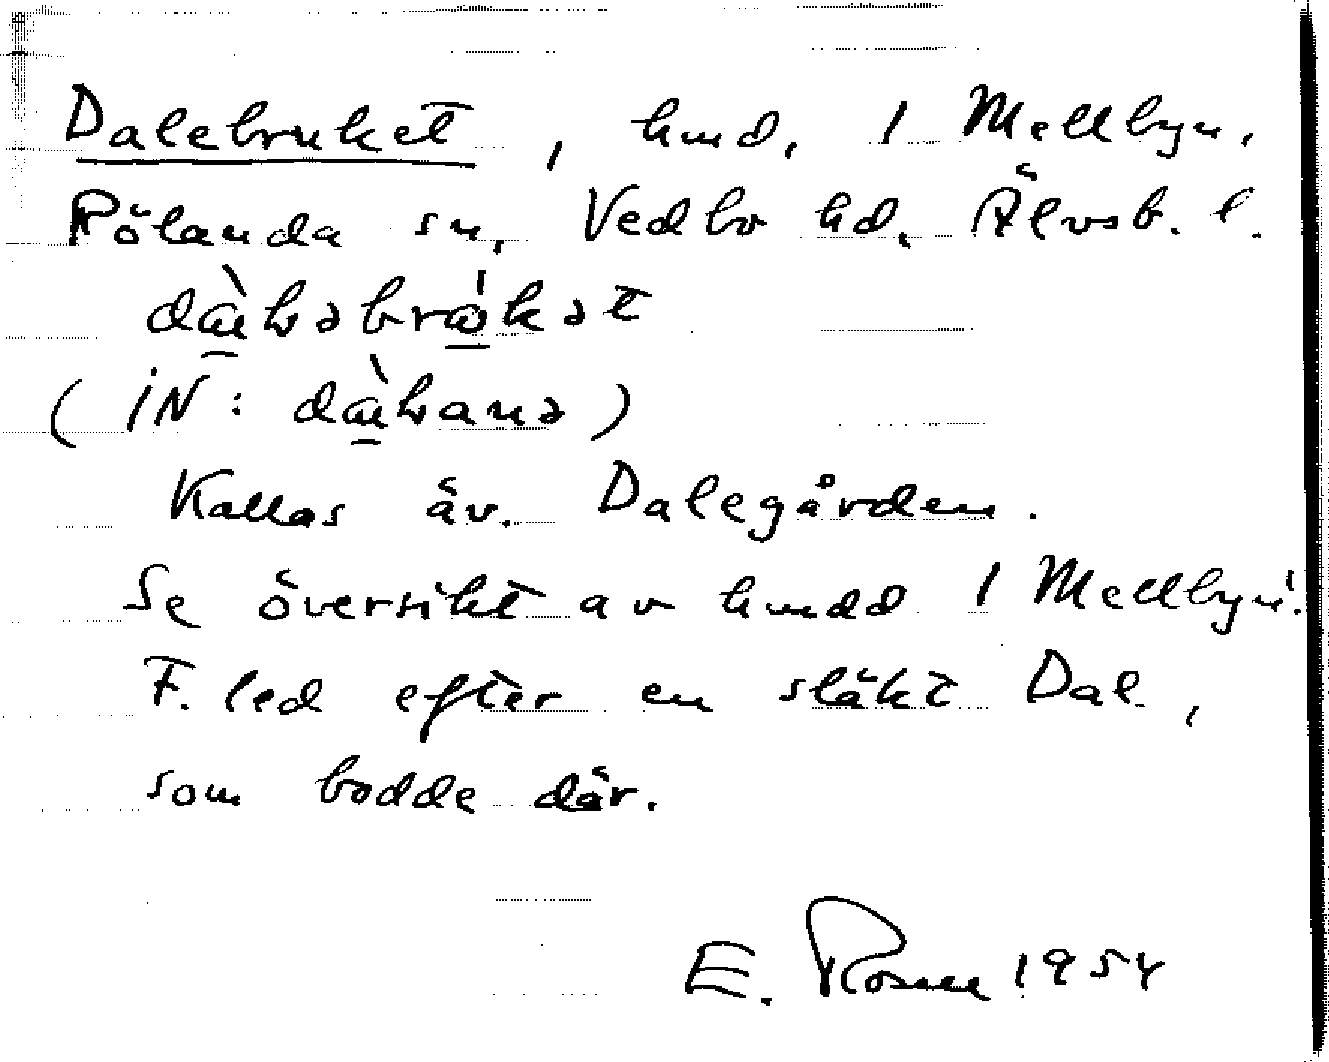 Dalebruket, hmd, 1 Mellbyn,
Rölanda sn, Vedbo hd, Älvsb. l.
(IN: )
Kallas äv. Dalegården.
Se översikt av hmdd 1 Mellbyn!
F. led efter en släkt Dal,
som bodde där.
E. Rosen 1954